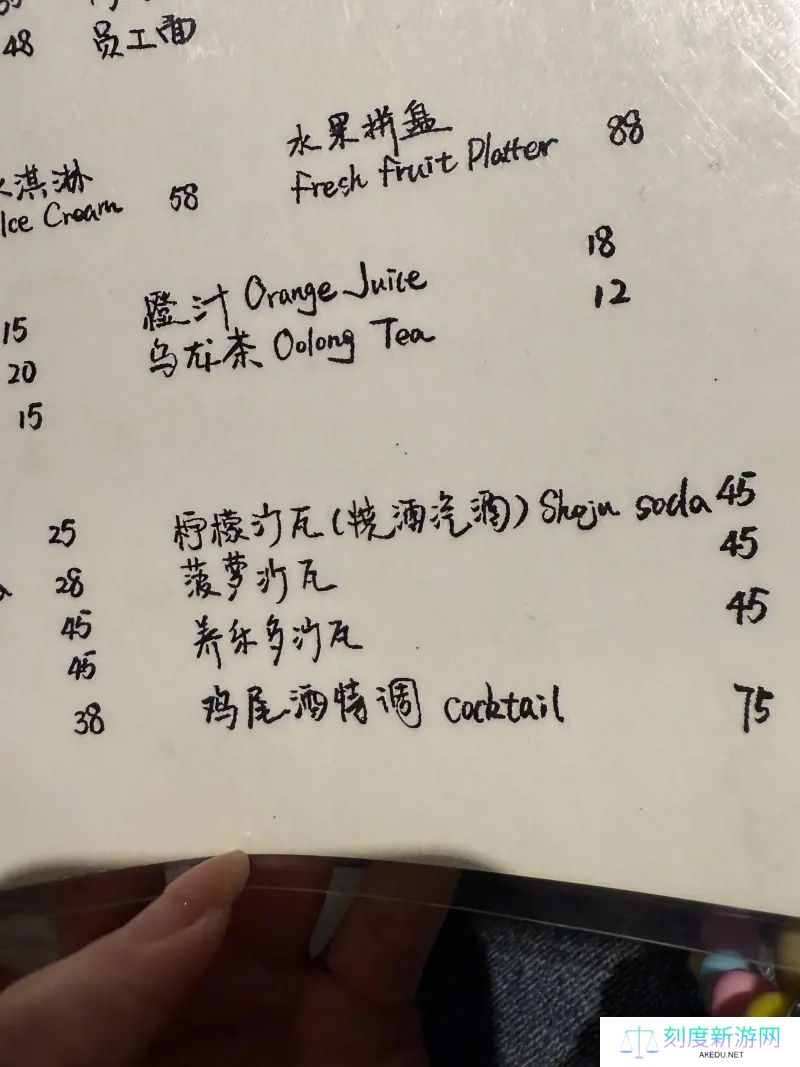 48 员工面
水果拼盘 88
Fresh Fruit Platter
淇淋 58
Ice Cream
橙汁 Orange Juice 18
乌龙茶 Oolong Tea 12
15
20
15
25 柠檬沙瓦(烧酒汽酒) Shoju soda 45
28 菠萝沙瓦 45
45 养乐多沙瓦 45
45
38 鸡尾酒特调 cocktail 75
刻度新游网
AKEDU.NET